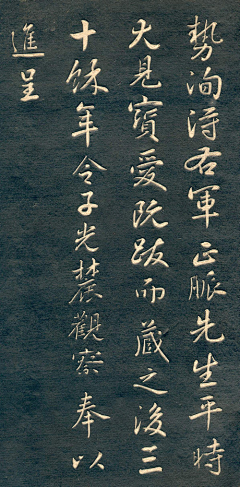 勢洵得右軍正脈先生平時
大見寳愛既跋而藏之後三
十餘年令子光麓觀察奉以
進呈